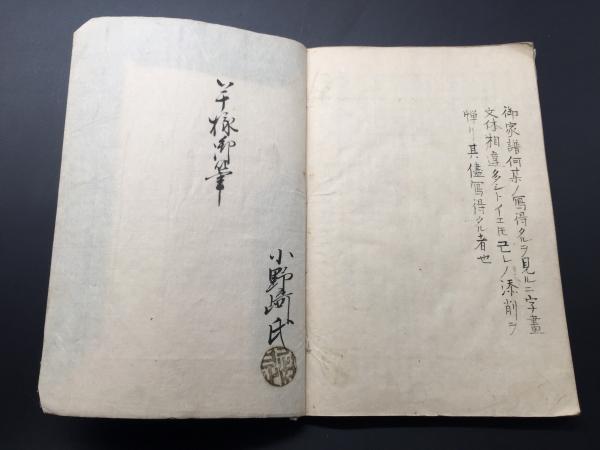 御家譜何某ノ寫得タルヲ見ルニ字畫
文体相違多シトイエ𪜈己レノ添削ヲ
憚リ其儘寫得タル者也
様御筆
小野﨑氏